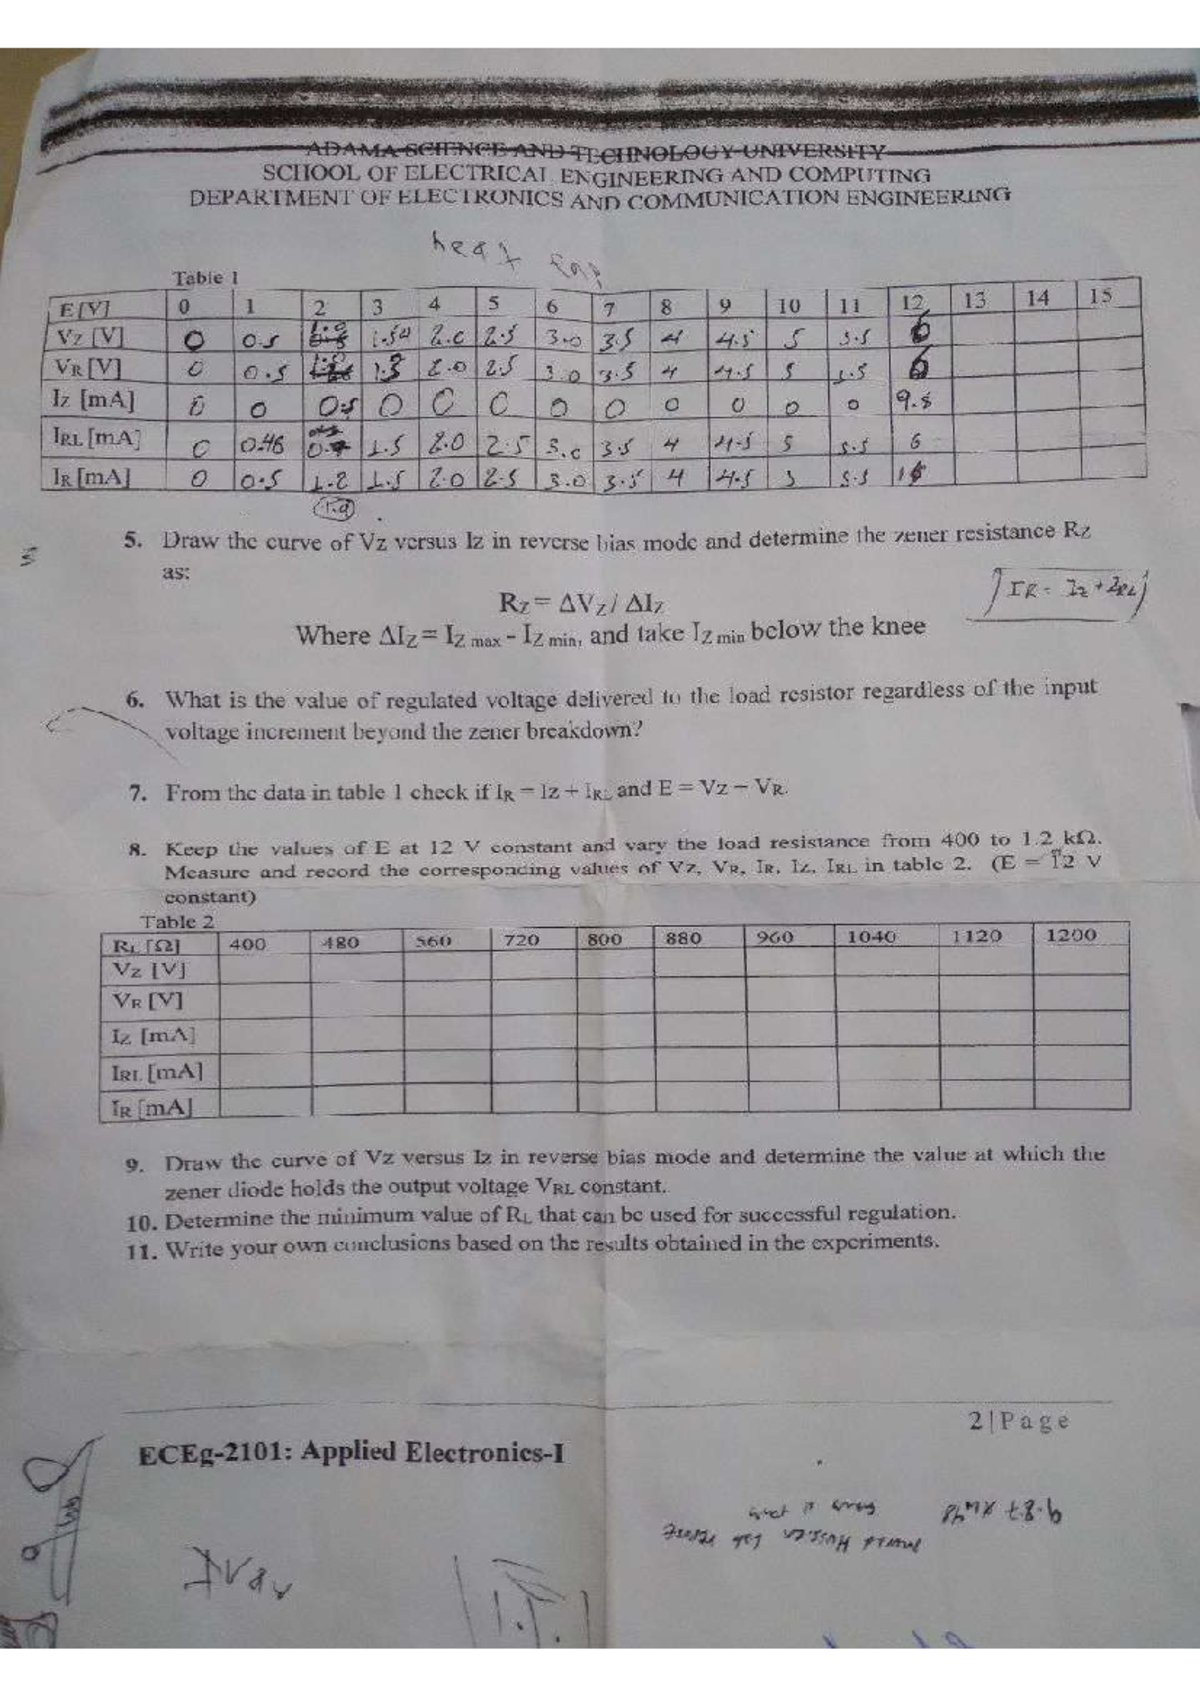 ADAMA SCIENCE AND TECHNOLOGY UNIVERSITY
SCHOOL OF ELECTRICAL ENGINEERING AND COMPUTING
DEPARTMENT OF ELECTRONICS AND COMMUNICATION ENGINEERING
heat
Table 1
E [V] 0 1 2 3 4 5 6 7 8 9 10 11 12 13 14 15
VZ [V] 0 0.5 1.54 2.0 2.5 3.0 3.5 4 4.5 5 5.5 6
VR [V] 0 0.5 1.5 2.0 2.5 3.0 3.5 4 4.5 5 5.5 6
IZ [mA] 0 0 0.5 0 0 0 0 0 0 0 0 0 9.8
IRL [mA] 0 0.46 0.7 1.5 2.0 2.5 3.0 3.5 4 4.5 5 5.5 6
IR [mA] 0 0.5 1.2 1.5 2.0 2.5 3.0 3.5 4 4.5 5 5.5
5. Draw the curve of VZ versus IZ in reverse bias mode and determine the zener resistance RZ
as:
IR = IZ + IRL
RZ = ΔVZ / ΔIZ
Where ΔIZ = IZ max - IZ min, and take IZ min below the knee
6. What is the value of regulated voltage delivered to the load resistor regardless of the input
voltage increment beyond the zener breakdown?
7. From the data in table 1 check if IR = IZ + IRL and E = VZ − VR.
8. Keep the values of E at 12 V constant and vary the load resistance from 400 to 1.2 kΩ.
Measure and record the corresponding values of VZ, VR, IR, IZ, IRL in table 2. (E = 12 V
constant)
Table 2
RL [Ω] 400 480 560 720 800 880 960 1040 1120 1200
VZ [V]
VR [V]
IZ [mA]
IRL [mA]
IR [mA]
9. Draw the curve of VZ versus IZ in reverse bias mode and determine the value at which the
zener diode holds the output voltage VRL constant.
10. Determine the minimum value of RL that can be used for successful regulation.
11. Write your own conclusions based on the results obtained in the experiments.
2 | Page
ECEg-2101: Applied Electronics-I